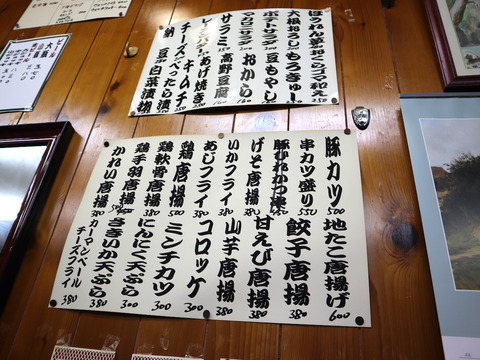 ほうれん草おくらゴマ和え 350
大根おろし もろきゅー
ポテトサラダ 豆もやし
マカロニサラダ おから
サラミ 350 高野豆腐 160
レーズンバター あげ焼き 250
チーズ キムチ
べったら漬
納豆 白菜漬物
豚カツ 500 地たこ唐揚げ 600
串カツ盛り 550
豚ひれかつ棒 450 餃子唐揚 380
げそ唐揚 380 甘えび唐揚 380
いかフライ 380 山芋唐揚
あじフライ 380 コロッケ 300
鶏唐揚 500 ミンチカツ 300
鶏軟骨唐揚 380 にんにく天ぷら 300
鶏手羽唐揚 ささいか天ぷら 380
かれい唐揚 380 カーマンベールチーズフライ 380
ビール
大瓶